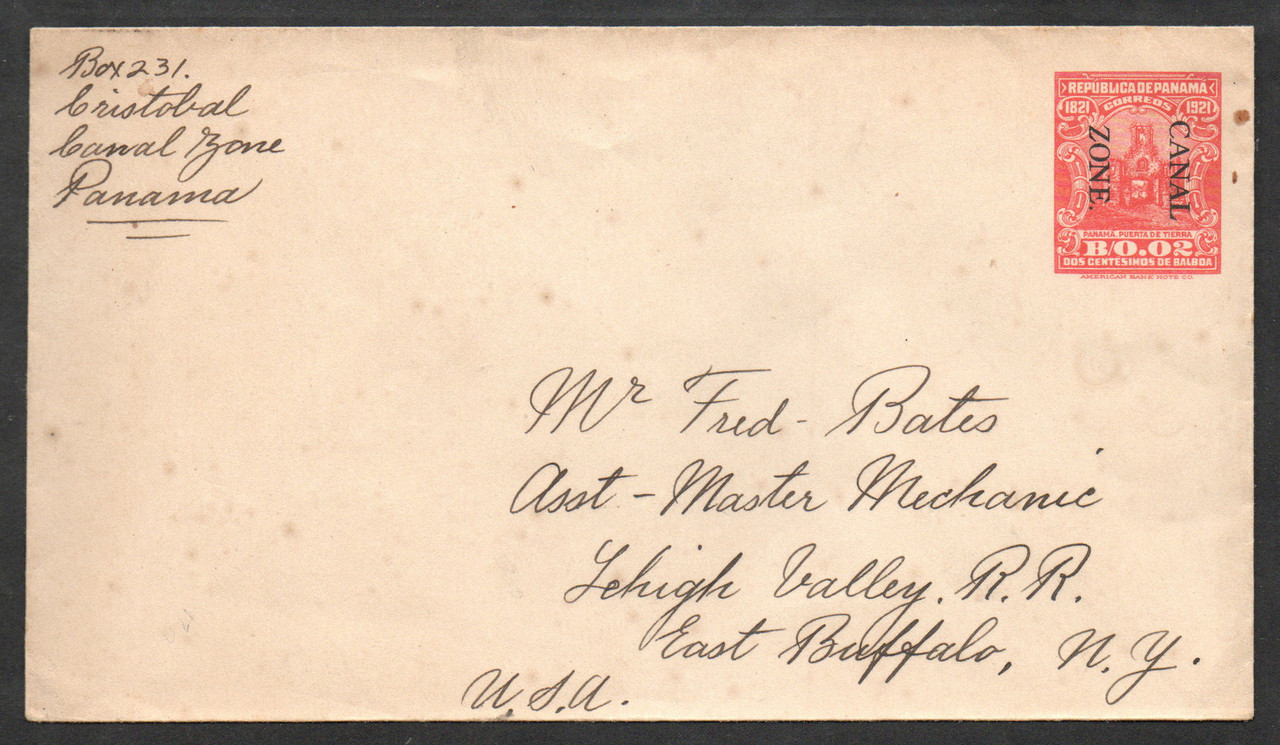 Box 231.
Cristobal
Canal Zone
Panama
REPÚBLICA DE PANAMÁ
1821 CORREOS 1921
CANAL
ZONE.
PANAMÁ. PUERTA DE TIERRA
B/0.02
DOS CENTÉSIMOS DE BALBOA
AMERICAN BANK NOTE CO.
Mr Fred - Bates
Asst - Master Mechanic
Lehigh Valley. R. R.
East Buffalo, N. Y.
U. S. A.